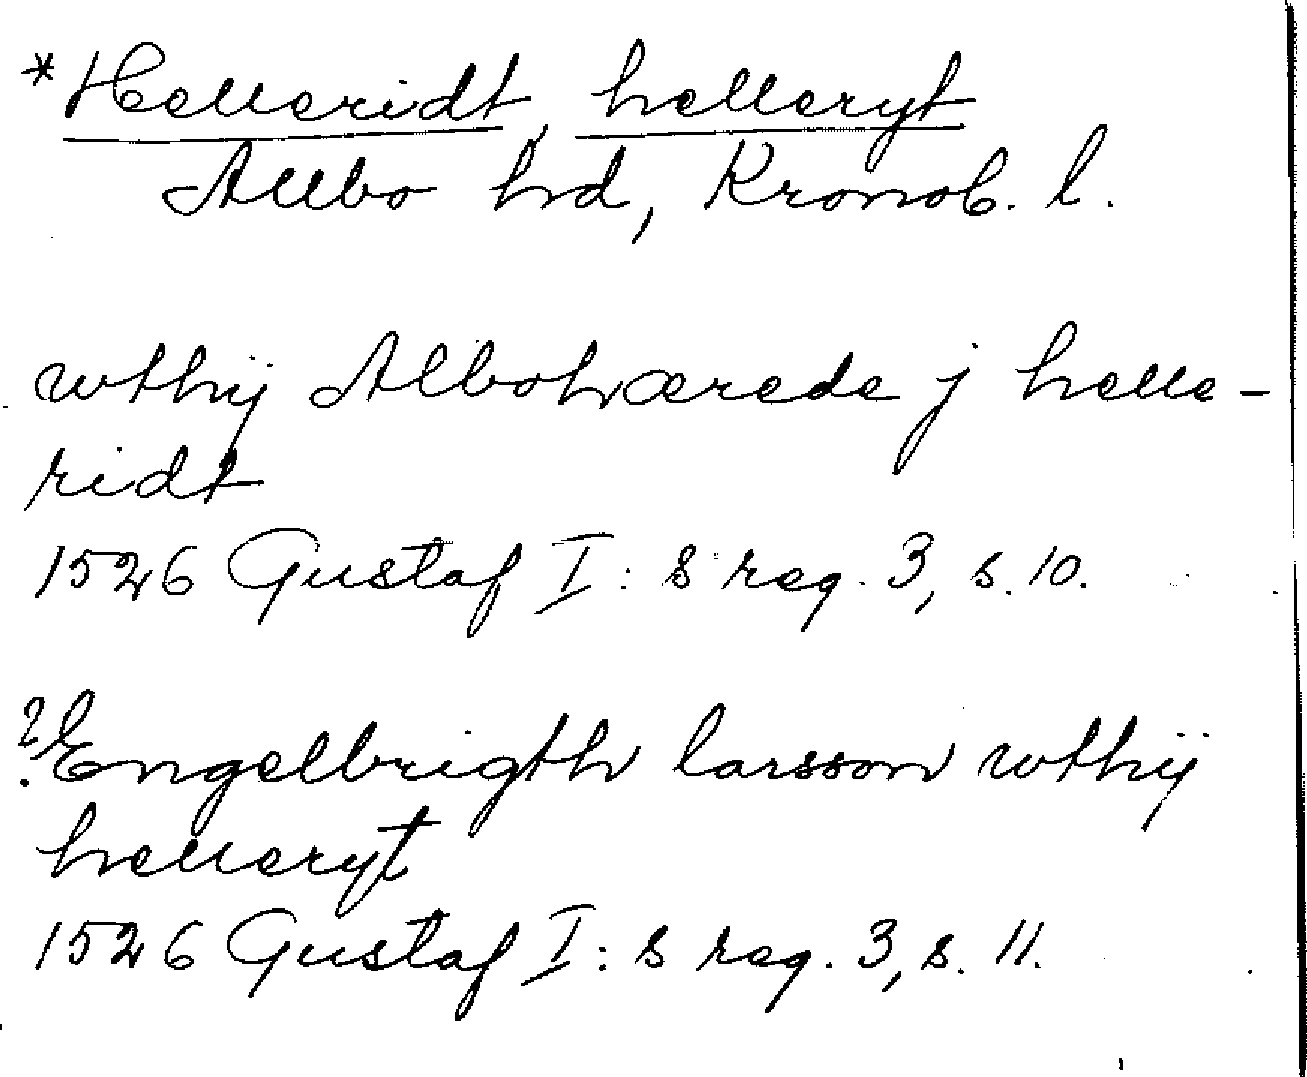 *Helleridt, helleryt
Allbo hd, Kronob. l.
wthij Albohærede j helle-
ridt
1526 Gustaf I:s reg. 3, s. 10.
? Engelbrigth larsson wthij
helleryt
1526 Gustaf I:s reg. 3, s. 11.